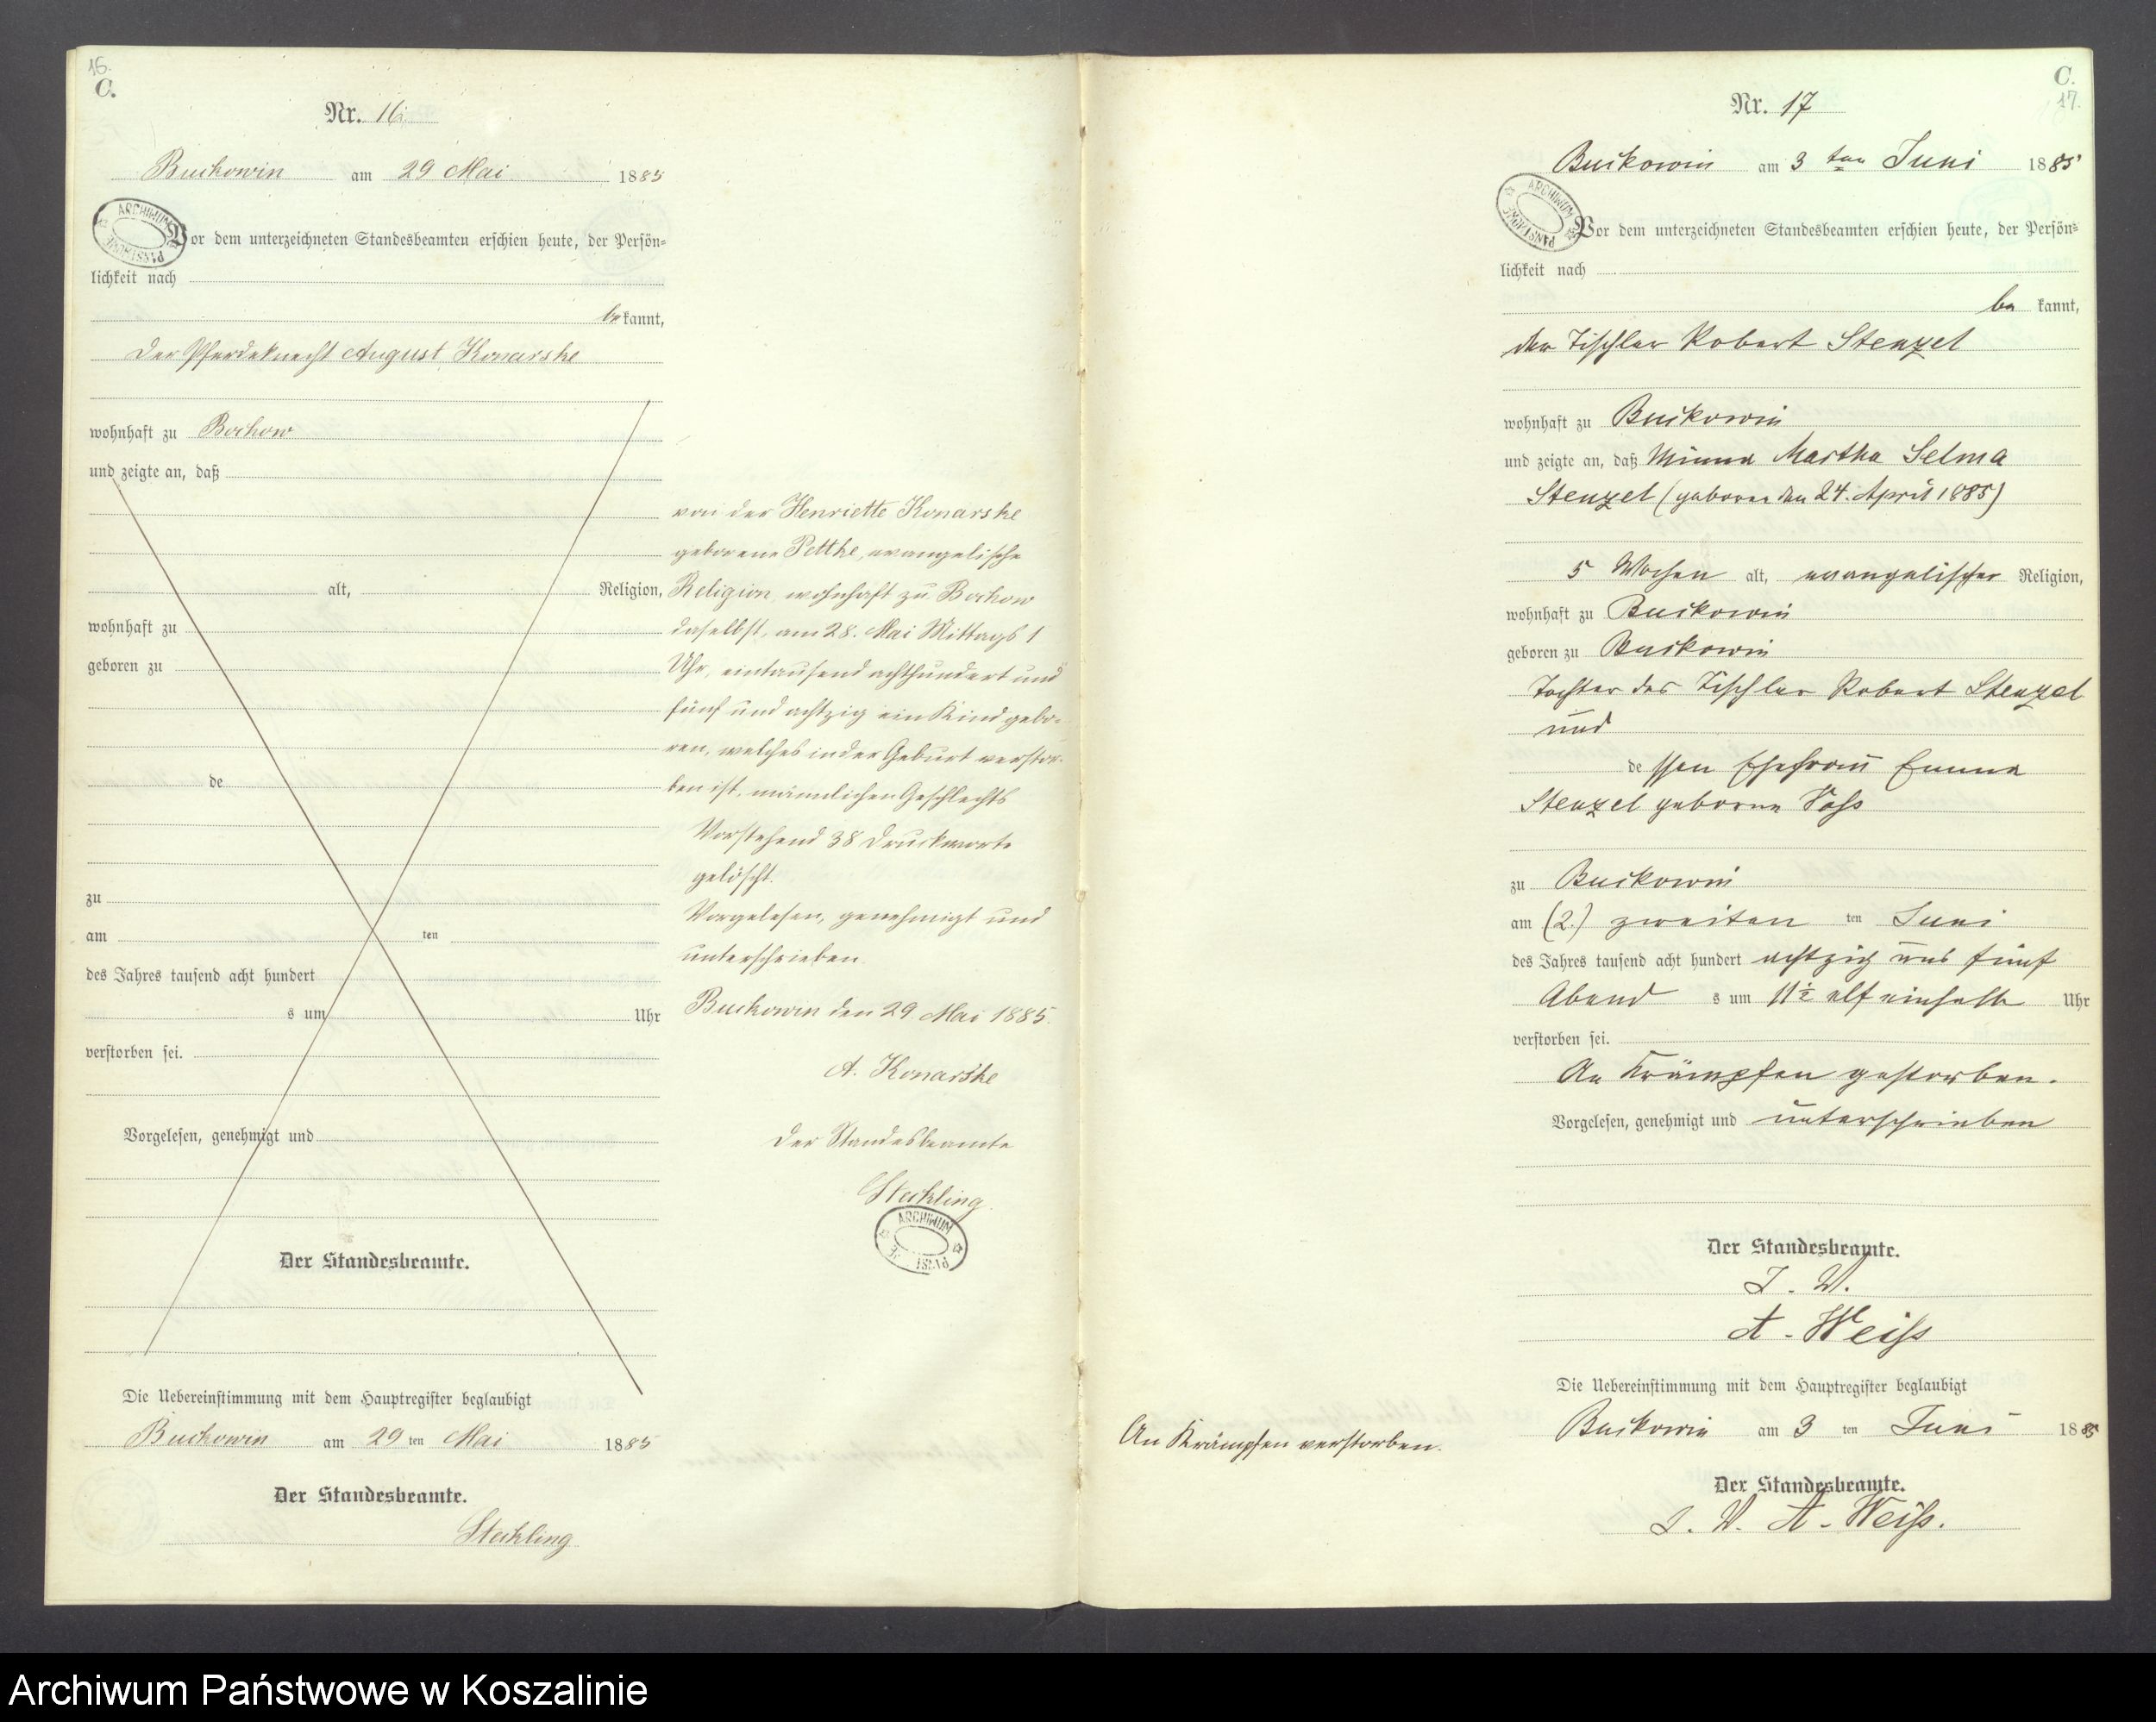 16.
C.
Nr. 16.
Buckowin am 29 Mai 1885
ARCHIWUM PAŃSTWOWE
Vor dem unterzeichneten Standesbeamten erschien heute, der Persön-
lichkeit nach
be kannt,
der Pferdeknecht August Konarske
wohnhaft zu Bochow
und zeigte an, daß
alt, Religion,
wohnhaft zu
geboren zu
de
zu
am ten
des Jahres tausend acht hundert
s um Uhr
verstorben sei.
Vorgelesen, genehmigt und
Der Standesbeamte.
Die Uebereinstimmung mit dem Hauptregister beglaubigt
Buckowin am 29 ten Mai 1885
Der Standesbeamte.
Steckling
von der Henriette Konarske
geborene Petthe, evangelische
Religion, wohnhaft zu Bochow
daselbst, am 28. Mai Mittags 1
Uhr, eintausend achthundert und
fünf und achtzig ein Kind gebo-
ren, welches in der Geburt verstor-
ben ist, männlichen Geschlechts
Vorstehend 38 Druckworte
gelöscht.
Vorgelesen, genehmigt und
unterschrieben.
Buckowin den 29. Mai 1885.
A. Konarske
Der Standesbeamte
Steckling.
ARCHIWUM
C.
17.
Nr. 17
Buckowin am 3 ten Juni 1885
ARCHIWUM PAŃSTWOWE
Vor dem unterzeichneten Standesbeamten erschien heute, der Persön-
lichkeit nach
be kannt,
der Tischler Robert Stenzel
wohnhaft zu Buckowin
und zeigte an, daß Minna Martha Selma
Stenzel (geboren den 24. April 1885)
5 Wochen alt, evangelischer Religion,
wohnhaft zu Buckowin
geboren zu Buckowin
Tochter des Tischler Robert Stenzel
und
de ssen Ehefrau Emma
Stenzel geborne Voss
zu Buckowin
am (2.) zweiten ten Juni
des Jahres tausend acht hundert achtzig und fünf
Abend s um 11½ elf einhalb Uhr
verstorben sei.
An Krämpfen gestorben.
Vorgelesen, genehmigt und unterschrieben
Der Standesbeamte.
I. V.
A. Weiss
Die Uebereinstimmung mit dem Hauptregister beglaubigt
Buckowin am 3 ten Juni 1885
Der Standesbeamte.
I. V. A. Weiss.
An Krämpfen verstorben.
Archiwum Państwowe w Koszalinie